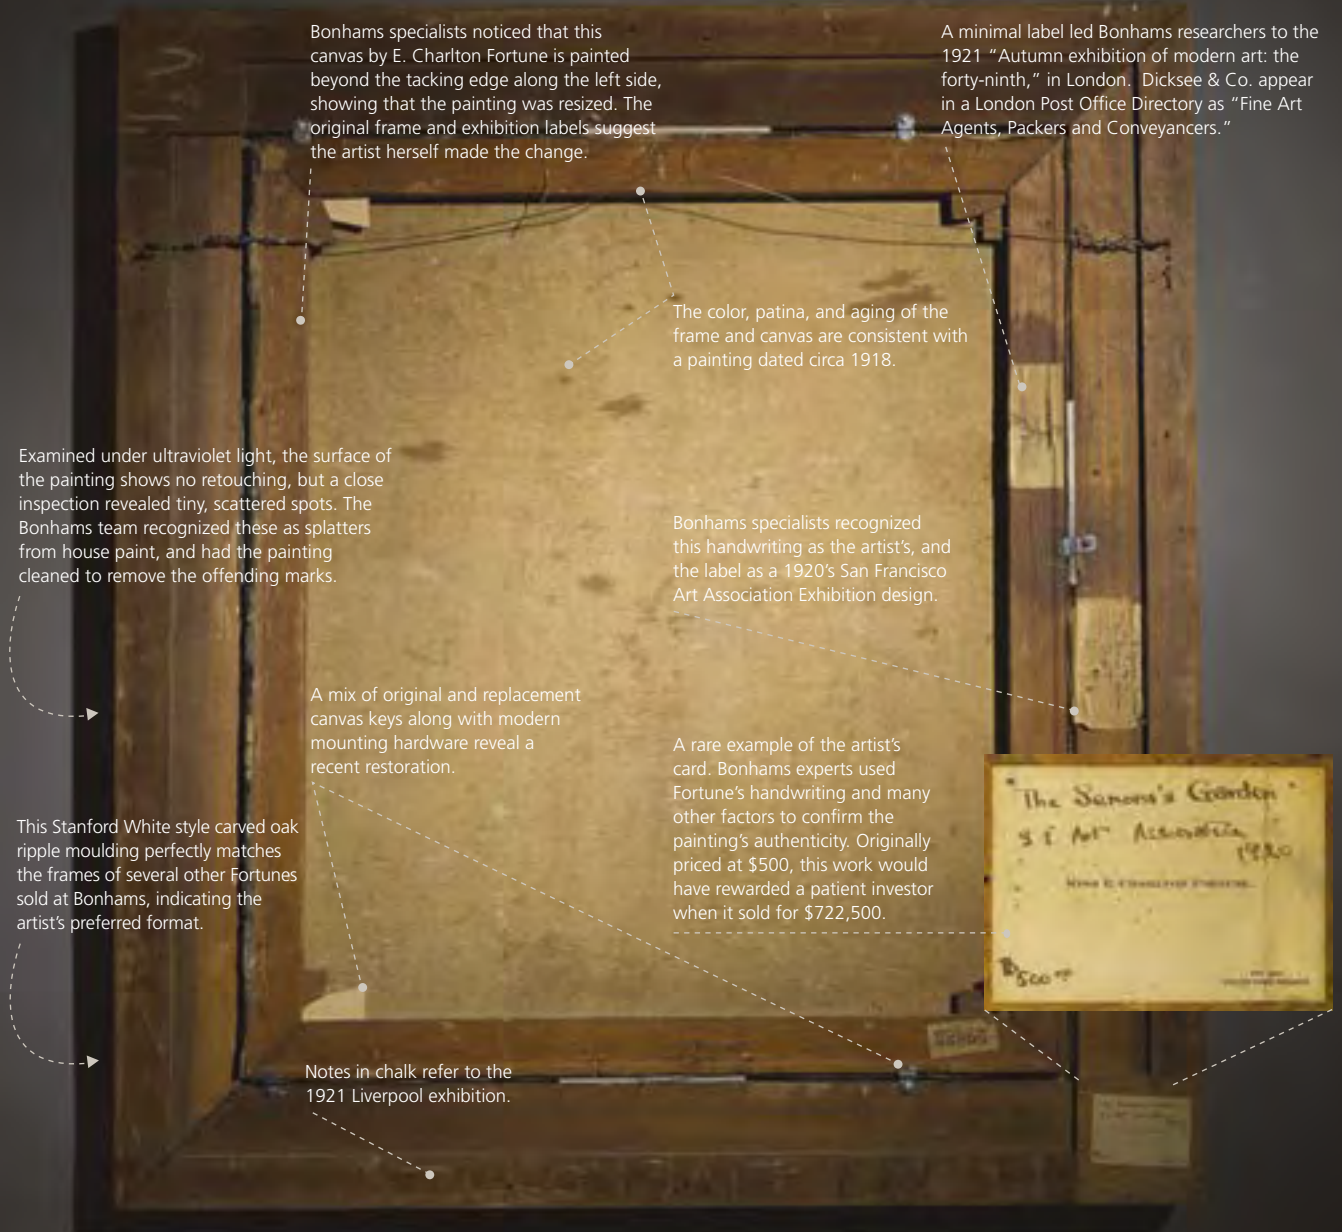 Bonhams specialists noticed that this
canvas by E. Charlton Fortune is painted
beyond the tacking edge along the left side,
showing that the painting was resized. The
original frame and exhibition labels suggest
the artist herself made the change.
A minimal label led Bonhams researchers to the
1921 “Autumn exhibition of modern art: the
forty-ninth,” in London. Dicksee & Co. appear
in a London Post Office Directory as “Fine Art
Agents, Packers and Conveyancers.”
The color, patina, and aging of the
frame and canvas are consistent with
a painting dated circa 1918.
Examined under ultraviolet light, the surface of
the painting shows no retouching, but a close
inspection revealed tiny, scattered spots. The
Bonhams team recognized these as splatters
from house paint, and had the painting
cleaned to remove the offending marks.
Bonhams specialists recognized
this handwriting as the artist’s, and
the label as a 1920’s San Francisco
Art Association Exhibition design.
A mix of original and replacement
canvas keys along with modern
mounting hardware reveal a
recent restoration.
A rare example of the artist’s
card. Bonhams experts used
Fortune’s handwriting and many
other factors to confirm the
painting’s authenticity. Originally
priced at $500, this work would
have rewarded a patient investor
when it sold for $722,500.
This Stanford White style carved oak
ripple moulding perfectly matches
the frames of several other Fortunes
sold at Bonhams, indicating the
artist’s preferred format.
"The Garden"
S F Art Association
1920
$500
Notes in chalk refer to the
1921 Liverpool exhibition.